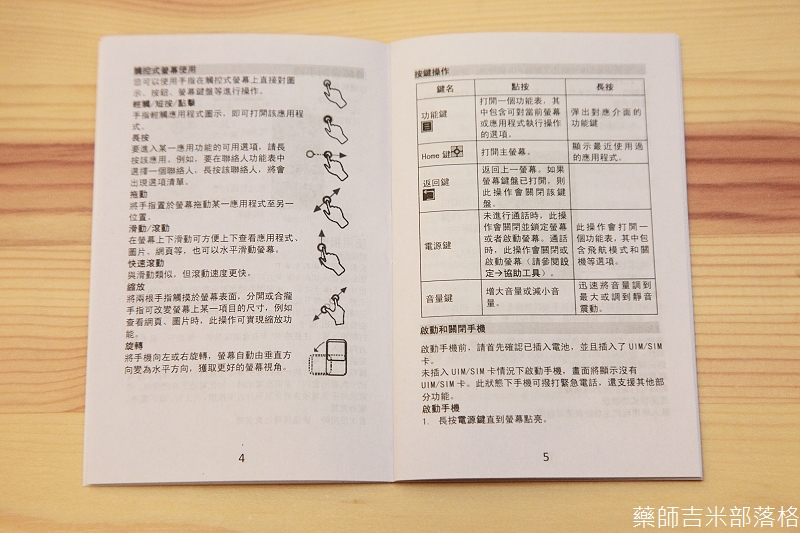 觸控式螢幕使用
您可以使用手指在觸控式螢幕上直接對圖
示、按鈕、螢幕鍵盤等進行操作。
輕觸/短按/點擊
手指輕觸應用程式圖示，即可打開該應用程
式。
長按
要進入某一應用功能的可用選項，請長
按該應用。例如，要在聯絡人功能表中
選擇一個聯絡人，長按該聯絡人，將會
出現選項清單。
拖動
將手指置於螢幕拖動某一應用程式至另一
位置。
滑動/滾動
在螢幕上下滑動可方便上下查看應用程式、
圖片、網頁等，也可以水平滑動螢幕。
快速滾動
與滑動類似，但滾動速度更快。
縮放
將兩根手指觸摸於螢幕表面，分開或合攏
手指可改變螢幕上某一項目的尺寸，例如
查看網頁、圖片時，此操作可實現縮放功
能。
旋轉
將手機向左或右旋轉，螢幕自動由垂直方
向變為水平方向，獲取更好的螢幕視角。
4
按鍵操作
鍵名 點按 長按
功能鍵
打開一個功能表，其
中包含可對當前螢幕
或應用程式執行操作
的選項。
彈出對應介面的
功能鍵
Home 鍵
打開主螢幕。
顯示最近使用過
的應用程式。
返回鍵
返回上一螢幕。如果
螢幕鍵盤已打開，則
此操作會關閉該鍵
盤。
電源鍵
未進行通話時，此操
作會關閉並鎖定螢幕
或者啟動螢幕。通話
時，此操作會關閉或
啟動螢幕（請參閱設
定→協助工具）。
此操作會打開一
個功能表，其中包
含飛航模式和關
機等選項。
音量鍵
增大音量或減小音
量。
迅速將音量調到
最大或調到靜音
震動。
啟動和關閉手機
啟動手機前，請首先確認已插入電池，並且插入了 UIM/SIM
卡。
未插入 UIM/SIM 卡情況下啟動手機，畫面將顯示沒有
UIM/SIM 卡。此狀態下手機可撥打緊急電話，還支援其他部
分功能。
啟動手機
1. 長按電源鍵直到螢幕點亮。
5
藥師吉米部落格